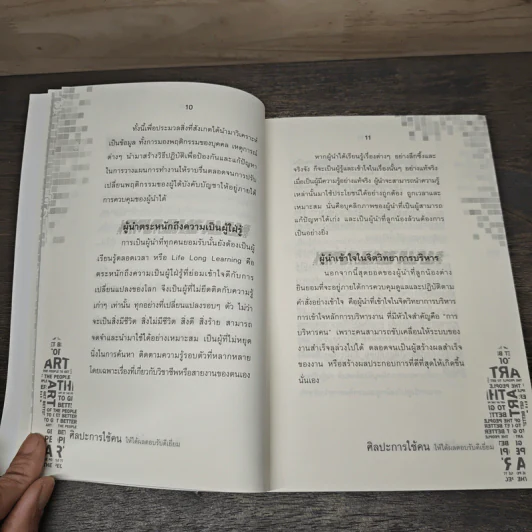 10
ทั้งนี้เพื่อประมวลสิ่งที่สังเกตได้นำมาวิเคราะห์
เป็นข้อมูล ทั้งการมองพฤติกรรมของบุคคล เหตุการณ์
ต่างๆ นำมาสร้างวิธีปฏิบัติเพื่อป้องกันและแก้ปัญหา
ในการวางแผนการทำงานให้ราบรื่นตลอดจนการปรับ
เปลี่ยนพฤติกรรมของผู้ใต้บังคับบัญชาให้อยู่ภายใต้
การควบคุมของผู้นำได้
ผู้นำตระหนักถึงความเป็นผู้ใฝ่รู้
การเป็นผู้นำที่ทุกคนยอมรับนั้นยังต้องเป็นผู้
เรียนรู้ตลอดเวลา หรือ Life Long Learning คือ
ตระหนักถึงความเป็นผู้ใฝ่รู้ที่ย่อมเข้าใจดีกับการ
เปลี่ยนแปลงของโลก จึงเป็นผู้ที่ไม่ยึดติดกับความรู้
เก่าๆ เท่านั้น ทุกอย่างที่เปลี่ยนแปลงรอบๆ ตัว ไม่ว่า
จะเป็นสิ่งมีชีวิต สิ่งไม่มีชีวิต สิ่งดี สิ่งร้าย สามารถ
จดจำและนำมาใช้ได้อย่างเหมาะสม เป็นผู้ที่ไม่หยุด
นิ่งในการค้นหา ติดตามความรู้รอบตัวที่หลากหลาย
โดยเฉพาะเรื่องที่เกี่ยวกับวิชาชีพหรือสายงานของตนเอง
ศิลปะการใช้คน ให้ได้ผลตอบรับดีเยี่ยม
11
หากผู้นำได้เรียนรู้เรื่องต่างๆ อย่างลึกซึ้งและ
จริงจัง ก็จะเป็นผู้รู้และเข้าใจในเรื่องนั้นๆ อย่างแท้จริง
เมื่อเป็นผู้มีความรู้อย่างแท้จริง ผู้นำจะสามารถนำความรู้
เหล่านั้นมาใช้ประโยชน์ได้อย่างถูกต้อง ถูกเวลาและ
เหมาะสม นั่นคือบุคลิกภาพของผู้นำที่เป็นผู้สามารถ
แก้ปัญหาได้เก่ง และเป็นผู้นำที่ลูกน้องล้วนต้องการ
เป็นอย่างยิ่ง
ผู้นำเข้าใจในจิตวิทยาการบริหาร
นอกจากนี้สุดยอดของผู้นำที่ลูกน้องต่าง
ยินยอมที่จะอยู่ภายใต้การควบคุมดูแลและปฏิบัติตาม
คำสั่งอย่างเข้าใจ คือผู้นำที่เข้าใจในจิตวิทยาการบริหาร
การเข้าใจหลักการบริหารงาน ที่มีหัวใจสำคัญคือ "การ
บริหารคน" เพราะคนสามารถขับเคลื่อนให้ระบบของ
งานสำเร็จลุล่วงไปได้ ตลอดจนเป็นผู้สร้างผลสำเร็จ
ของงาน หรือสร้างผลประกอบการที่ดีที่สุดให้เกิดขึ้น
นั่นเอง
ศิลปะการใช้คน ให้ได้ผลตอบรับดีเยี่ยม